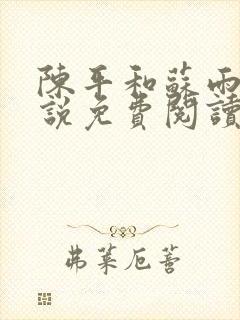 陳平和蘇雨
說免費閱讀
弗萊厄薈